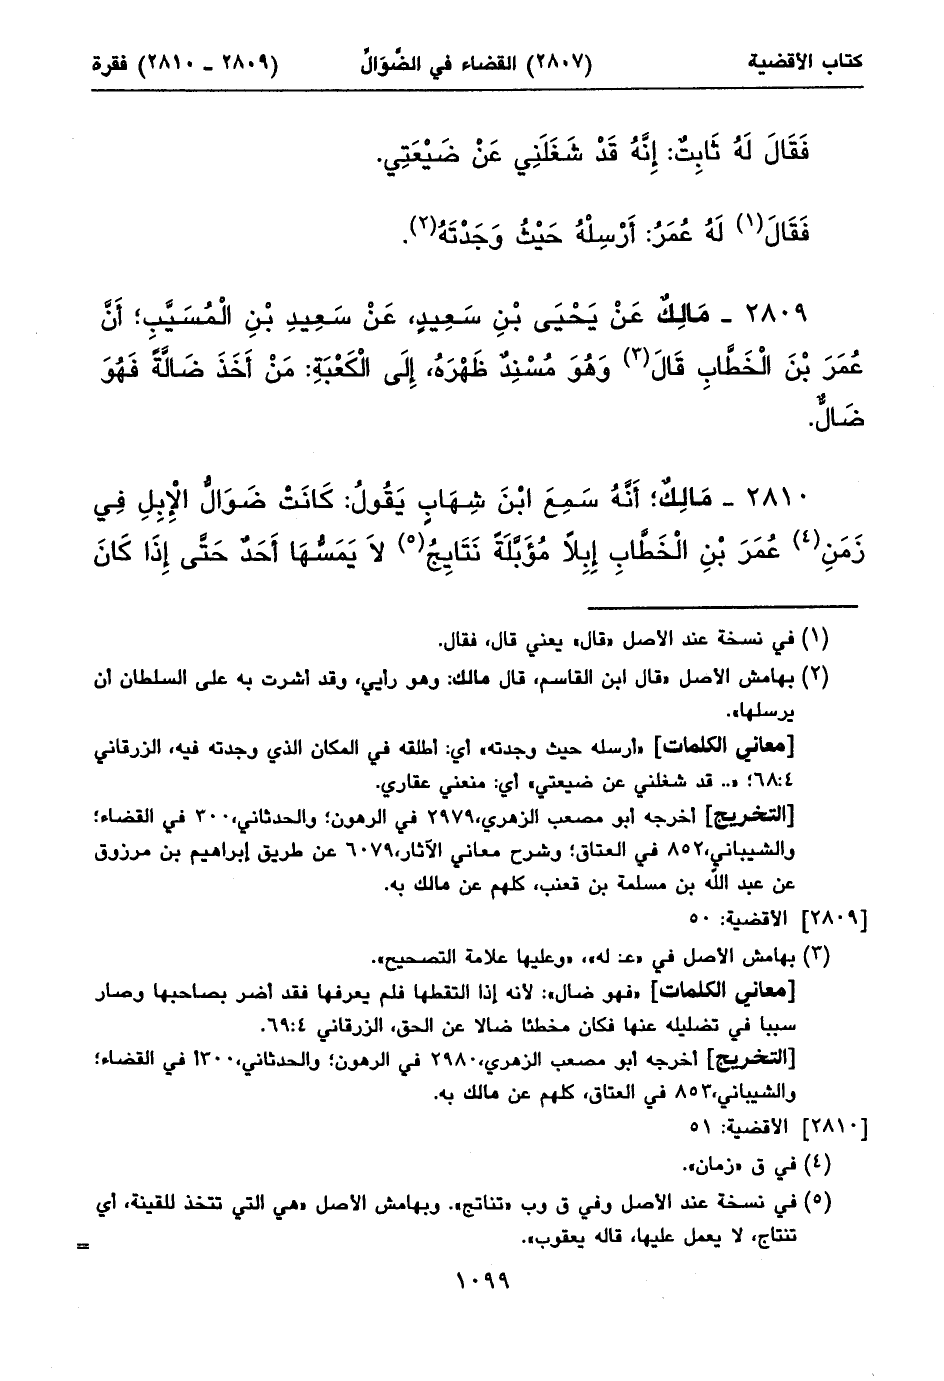 كتاب الأقضية (٢٨٠٧) القضاء في الضَّوَالِّ (٢٨٠٩ - ٢٨١٠) فقرة
فَقَالَ لَهُ ثَابِتٌ: إِنَّهُ قَدْ شَغَلَنِي عَنْ ضَيْعَتِي.
فَقَالَ(١) لَهُ عُمَرُ: أَرْسِلْهُ حَيْثُ وَجَدْتَهُ(٢).
٢٨٠٩ - مَالِكٌ عَنْ يَحْيَى بْنِ سَعِيدٍ، عَنْ سَعِيدِ بْنِ الْمُسَيَّبِ؛ أَنَّ
عُمَرَ بْنَ الْخَطَّابِ قَالَ(٣) وَهُوَ مُسْنِدٌ ظَهْرَهُ، إِلَى الْكَعْبَةِ: مَنْ أَخَذَ ضَالَّةً فَهُوَ
ضَالٌّ.
٢٨١٠ - مَالِكٌ؛ أَنَّهُ سَمِعَ ابْنَ شِهَابٍ يَقُولُ: كَانَتْ ضَوَالُّ الْإِبِلِ فِي
زَمَنِ(٤) عُمَرَ بْنِ الْخَطَّابِ إِبِلاً مُؤَبَّلَةً نَتَايِجُ(٥) لاَ يَمَسُّهَا أَحَدٌ حَتَّى إِذَا كَانَ
(١) في نسخة عند الأصل «قال» يعني قال، فقال.
(٢) بهامش الأصل «قال ابن القاسم، قال مالك: وهو رأيي، وقد أشرت به على السلطان أن
يرسلها».
[معاني الكلمات] «أرسله حيث وجدته» أي: أطلقه في المكان الذي وجدته فيه، الزرقاني
٦٨:٤؛ «.. قد شغلني عن ضيعتي» أي: منعني عقاري.
[التخريج] أخرجه أبو مصعب الزهري،٢٩٧٩ في الرهون؛ والحدثاني،٣٠٠ في القضاء؛
والشيباني،٨٥٢ في العتاق؛ وشرح معاني الآثار،٦٠٧٩ عن طريق إبراهيم بن مرزوق
عن عبد الله بن مسلمة بن قعنب، كلهم عن مالك به.
[٢٨٠٩] الأقضية: ٥٠
(٣) بهامش الأصل في «عـ له»، «وعليها علامة التصحيح».
[معاني الكلمات] «فهو ضال»: لأنه إذا التقطها فلم يعرفها فقد أضر بصاحبها وصار
سببا في تضليله عنها فكان مخطئا ضالا عن الحق، الزرقاني ٦٩:٤.
[التخريج] أخرجه أبو مصعب الزهري،٢٩٨٠ في الرهون؛ والحدثاني،٣٠٠أ في القضاء؛
والشيباني،٨٥٣ في العتاق، كلهم عن مالك به.
[٢٨١٠] الأقضية: ٥١
(٤) في ق «زمان».
(٥) في نسخة عند الأصل وفي ق وب «تناتج». وبهامش الأصل «هي التي تتخذ للقينة، أي
تنتاج، لا يعمل عليها، قاله يعقوب».
=
١٠٩٩